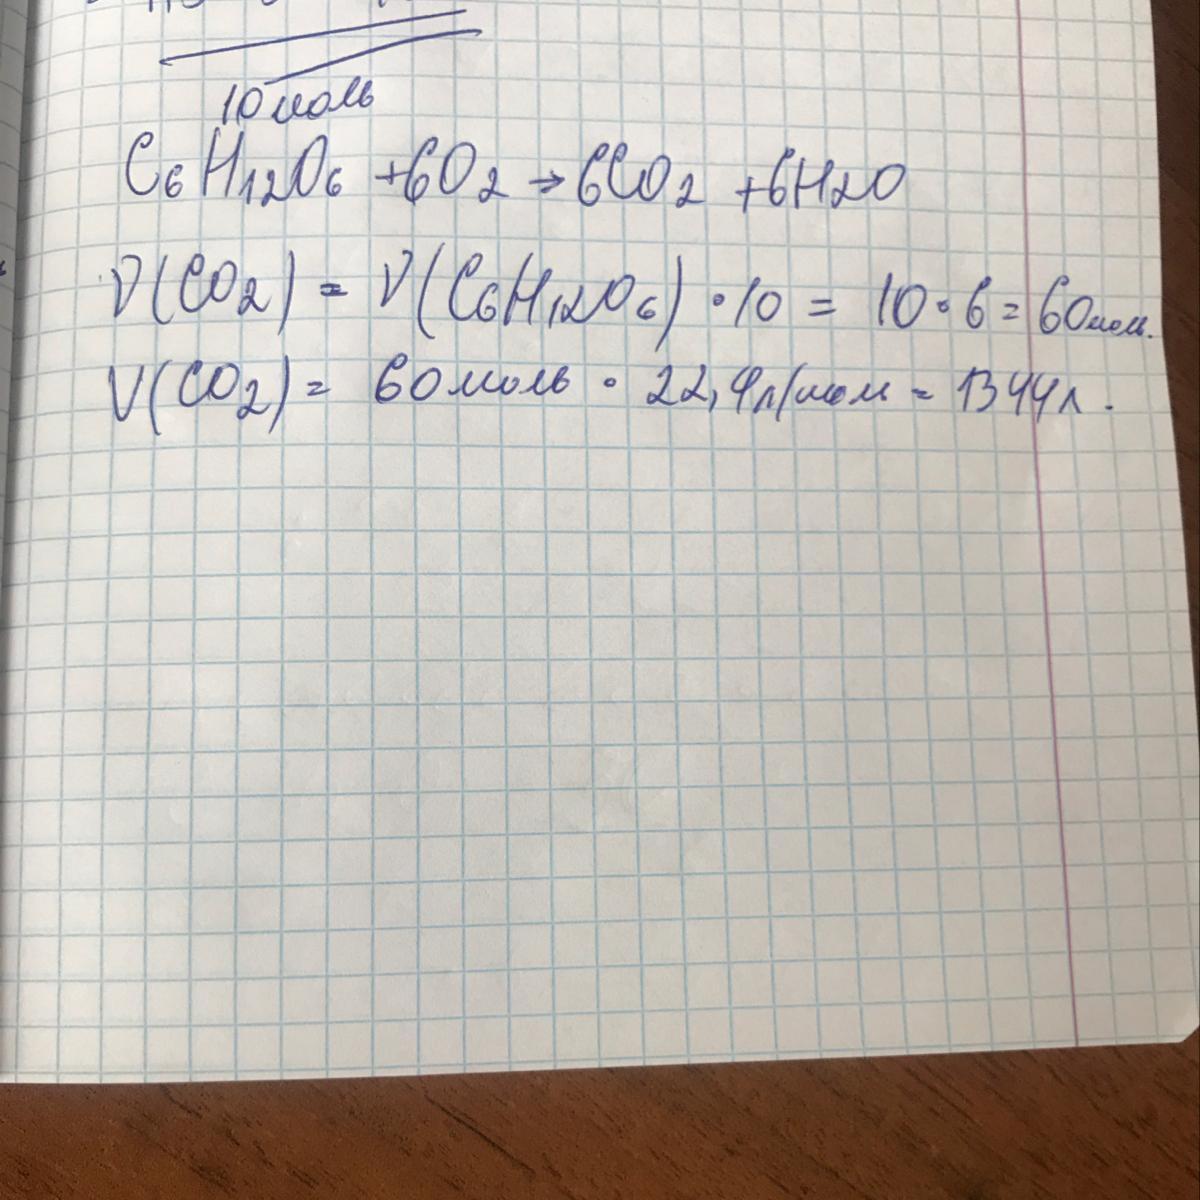 10 моль
C6H12O6 + 6O2 → 6CO2 + 6H2O
ν(CO2) = ν(C6H12O6) · 10 = 10 · 6 = 60 мол.
V(CO2) = 60 моль · 22,4 л/мол = 1344 л.